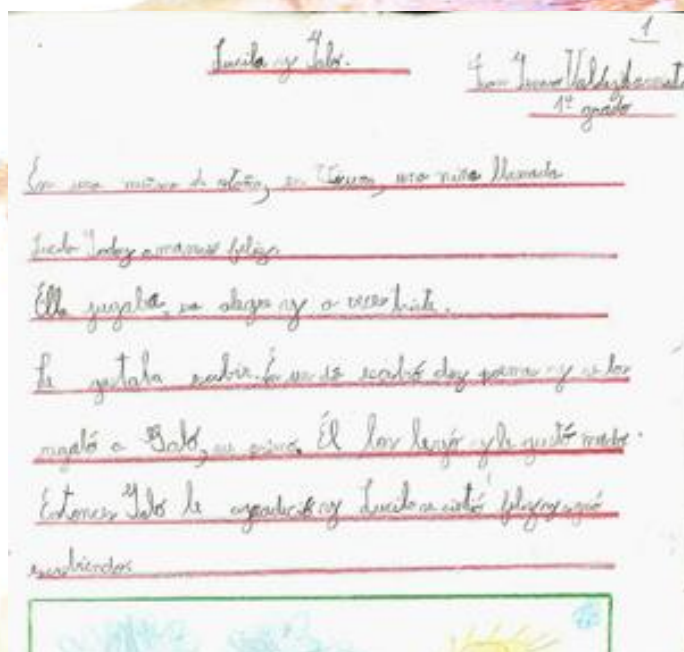 1
Lucila y Galo.
Valdebenito
1º grado
En una mañana de otoño, en Vicuña, una niña llamada
Lucila Godoy amaneció feliz.
Ella jugaba, era alegre y a veces triste.
Le gustaba escribir. En un día escribió doz poemas y se los
regaló a Galo, su primo. Él los leyó y le gustó mucho.
Entonces Galo le agradeció y Lucila se sintió feliz y siguió
escribiendo.